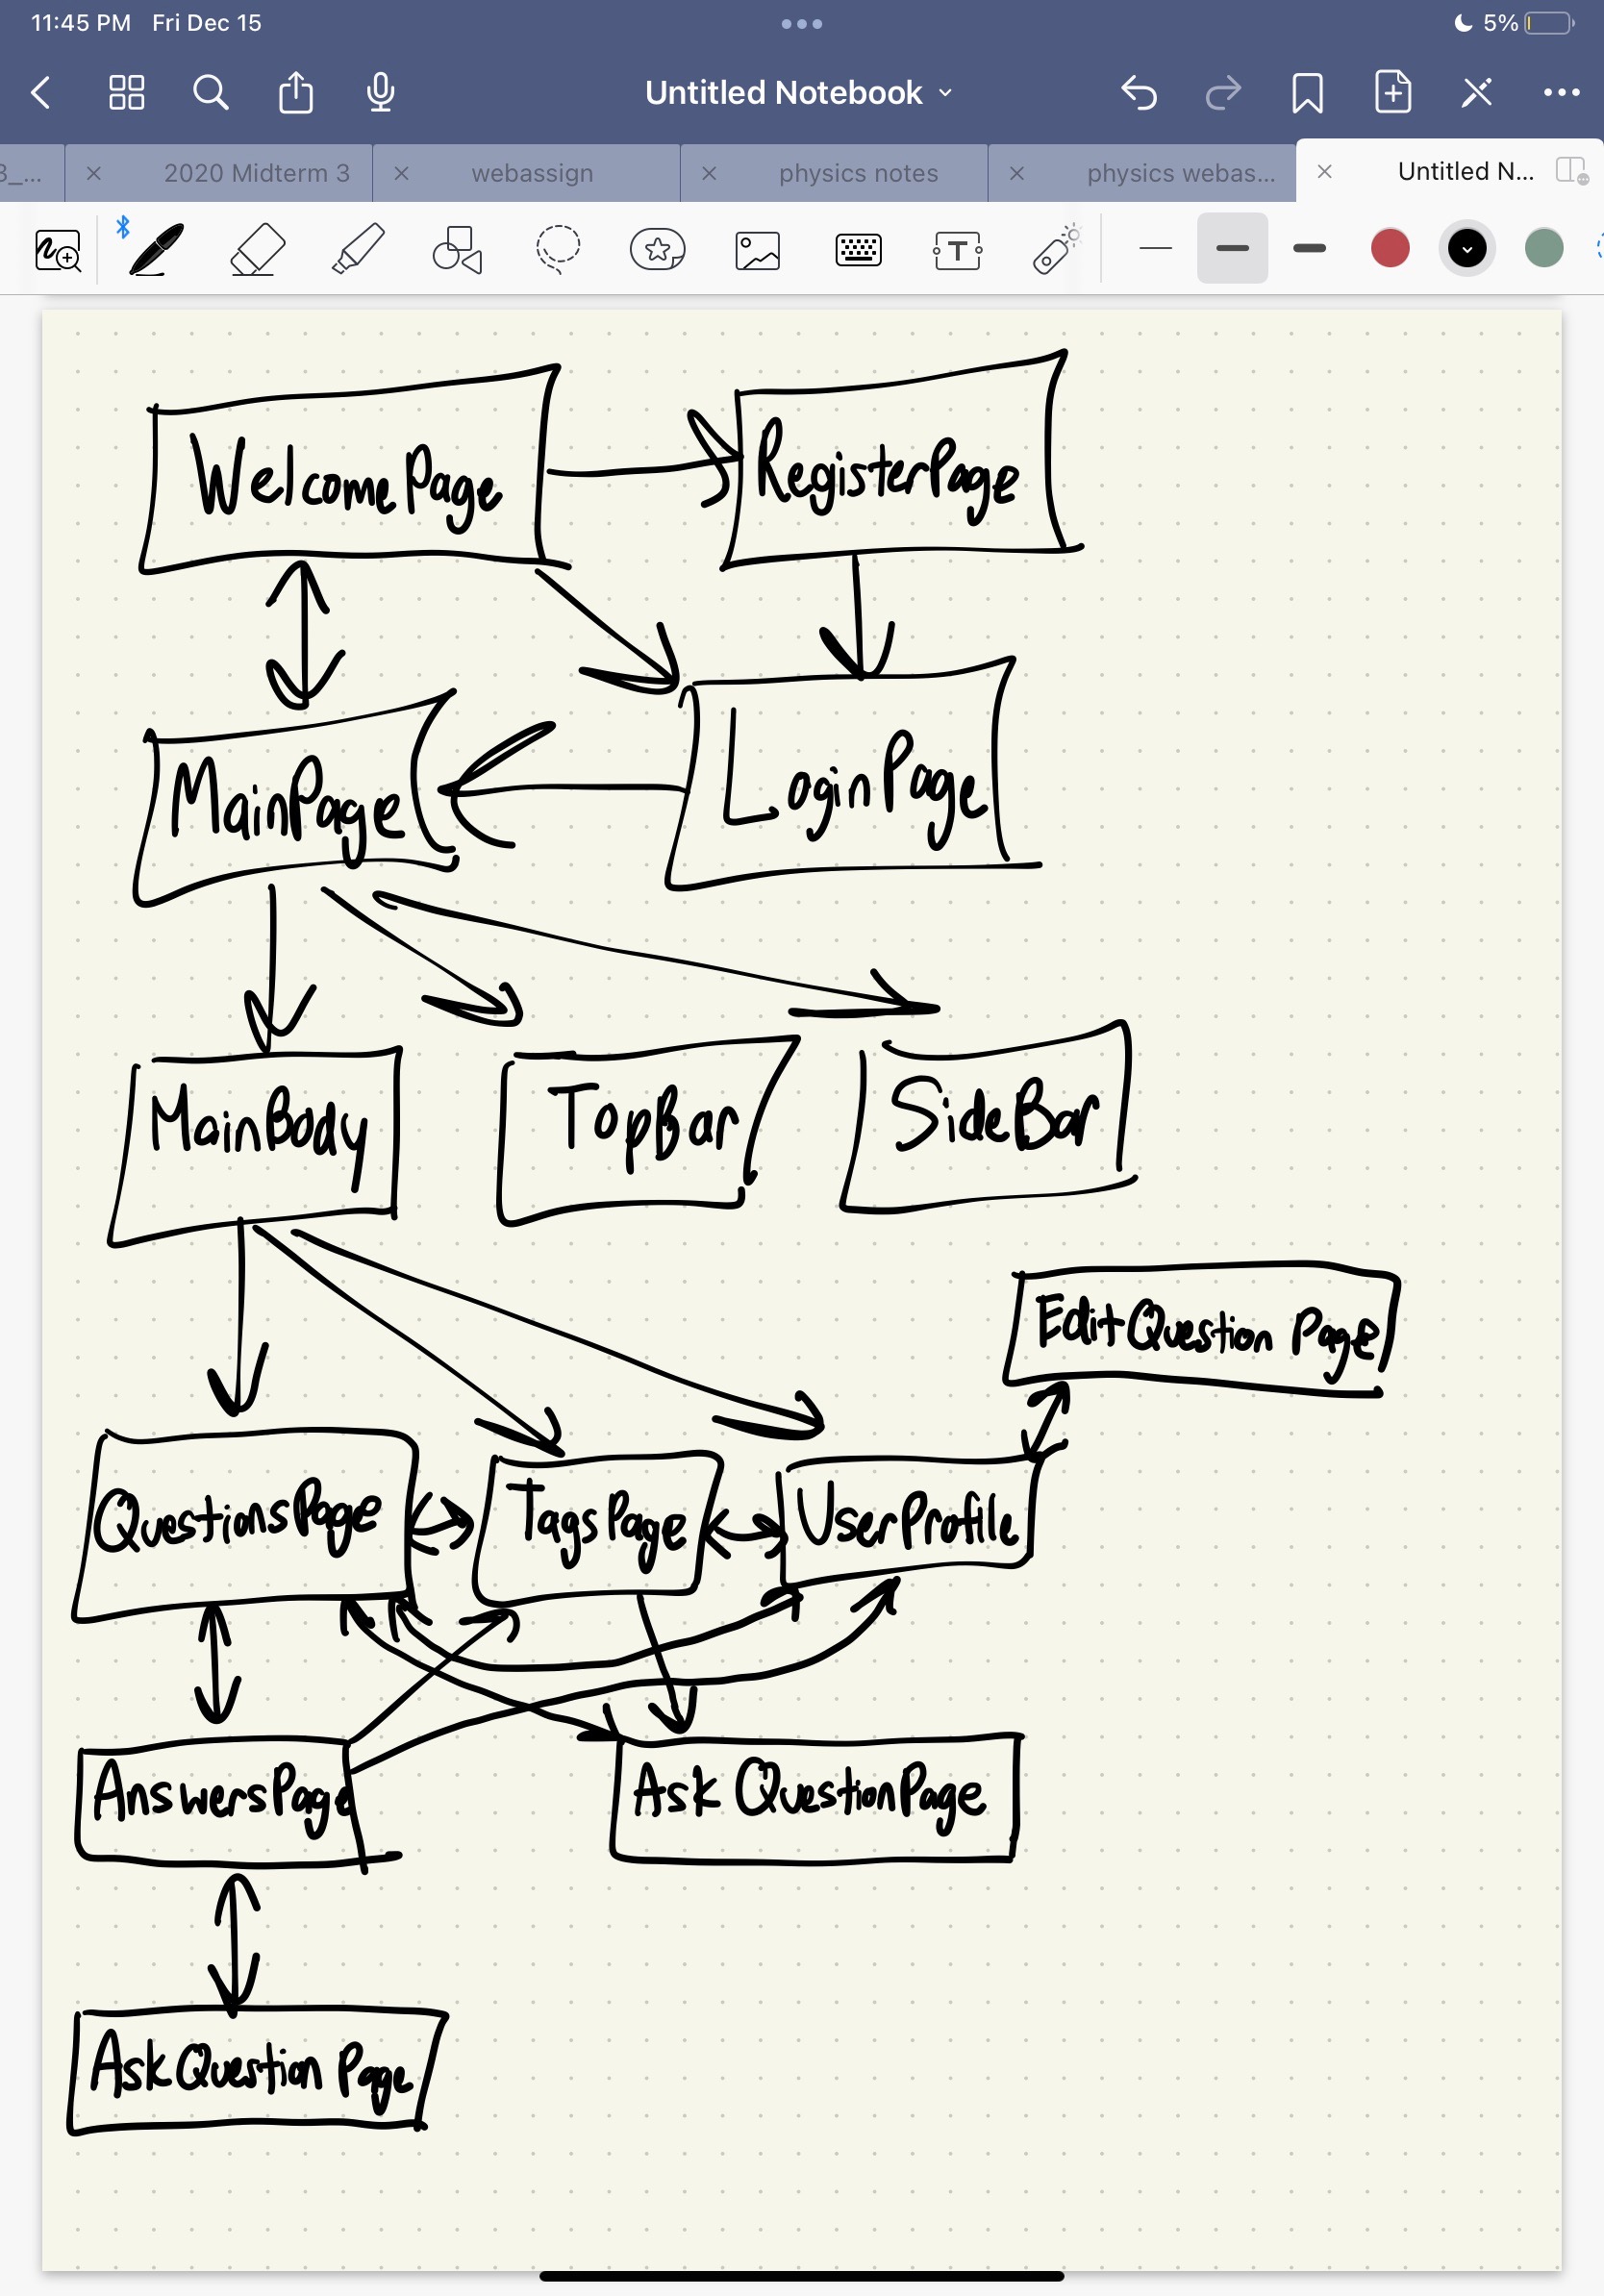 11:45 PM Fri Dec 15
5%
Untitled Notebook
3_...
2020 Midterm 3
webassign
physics notes
physics webas...
Untitled N...
T
WelcomePage
RegisterPage
MainPage
LoginPage
MainBody
TopBar
SideBar
EditQuestion Page
QuestionsPage
TagsPage
UserProfile
AnswersPage
Ask QuestionPage
AskQuestion Page